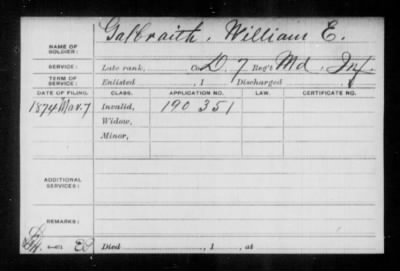 Galbraith, William E.
NAME OF SOLDIER:
SERVICE: Late rank, Co. D, 7 Reg't Md. Inf.
TERM OF SERVICE: Enlisted , 1 Discharged , 1
DATE OF FILING. CLASS. APPLICATION NO. LAW. CERTIFICATE NO.
1874 Mar. 7 Invalid, 190 351
Widow,
Minor,
ADDITIONAL SERVICES:
REMARKS:
6—071
Died , 1 , at